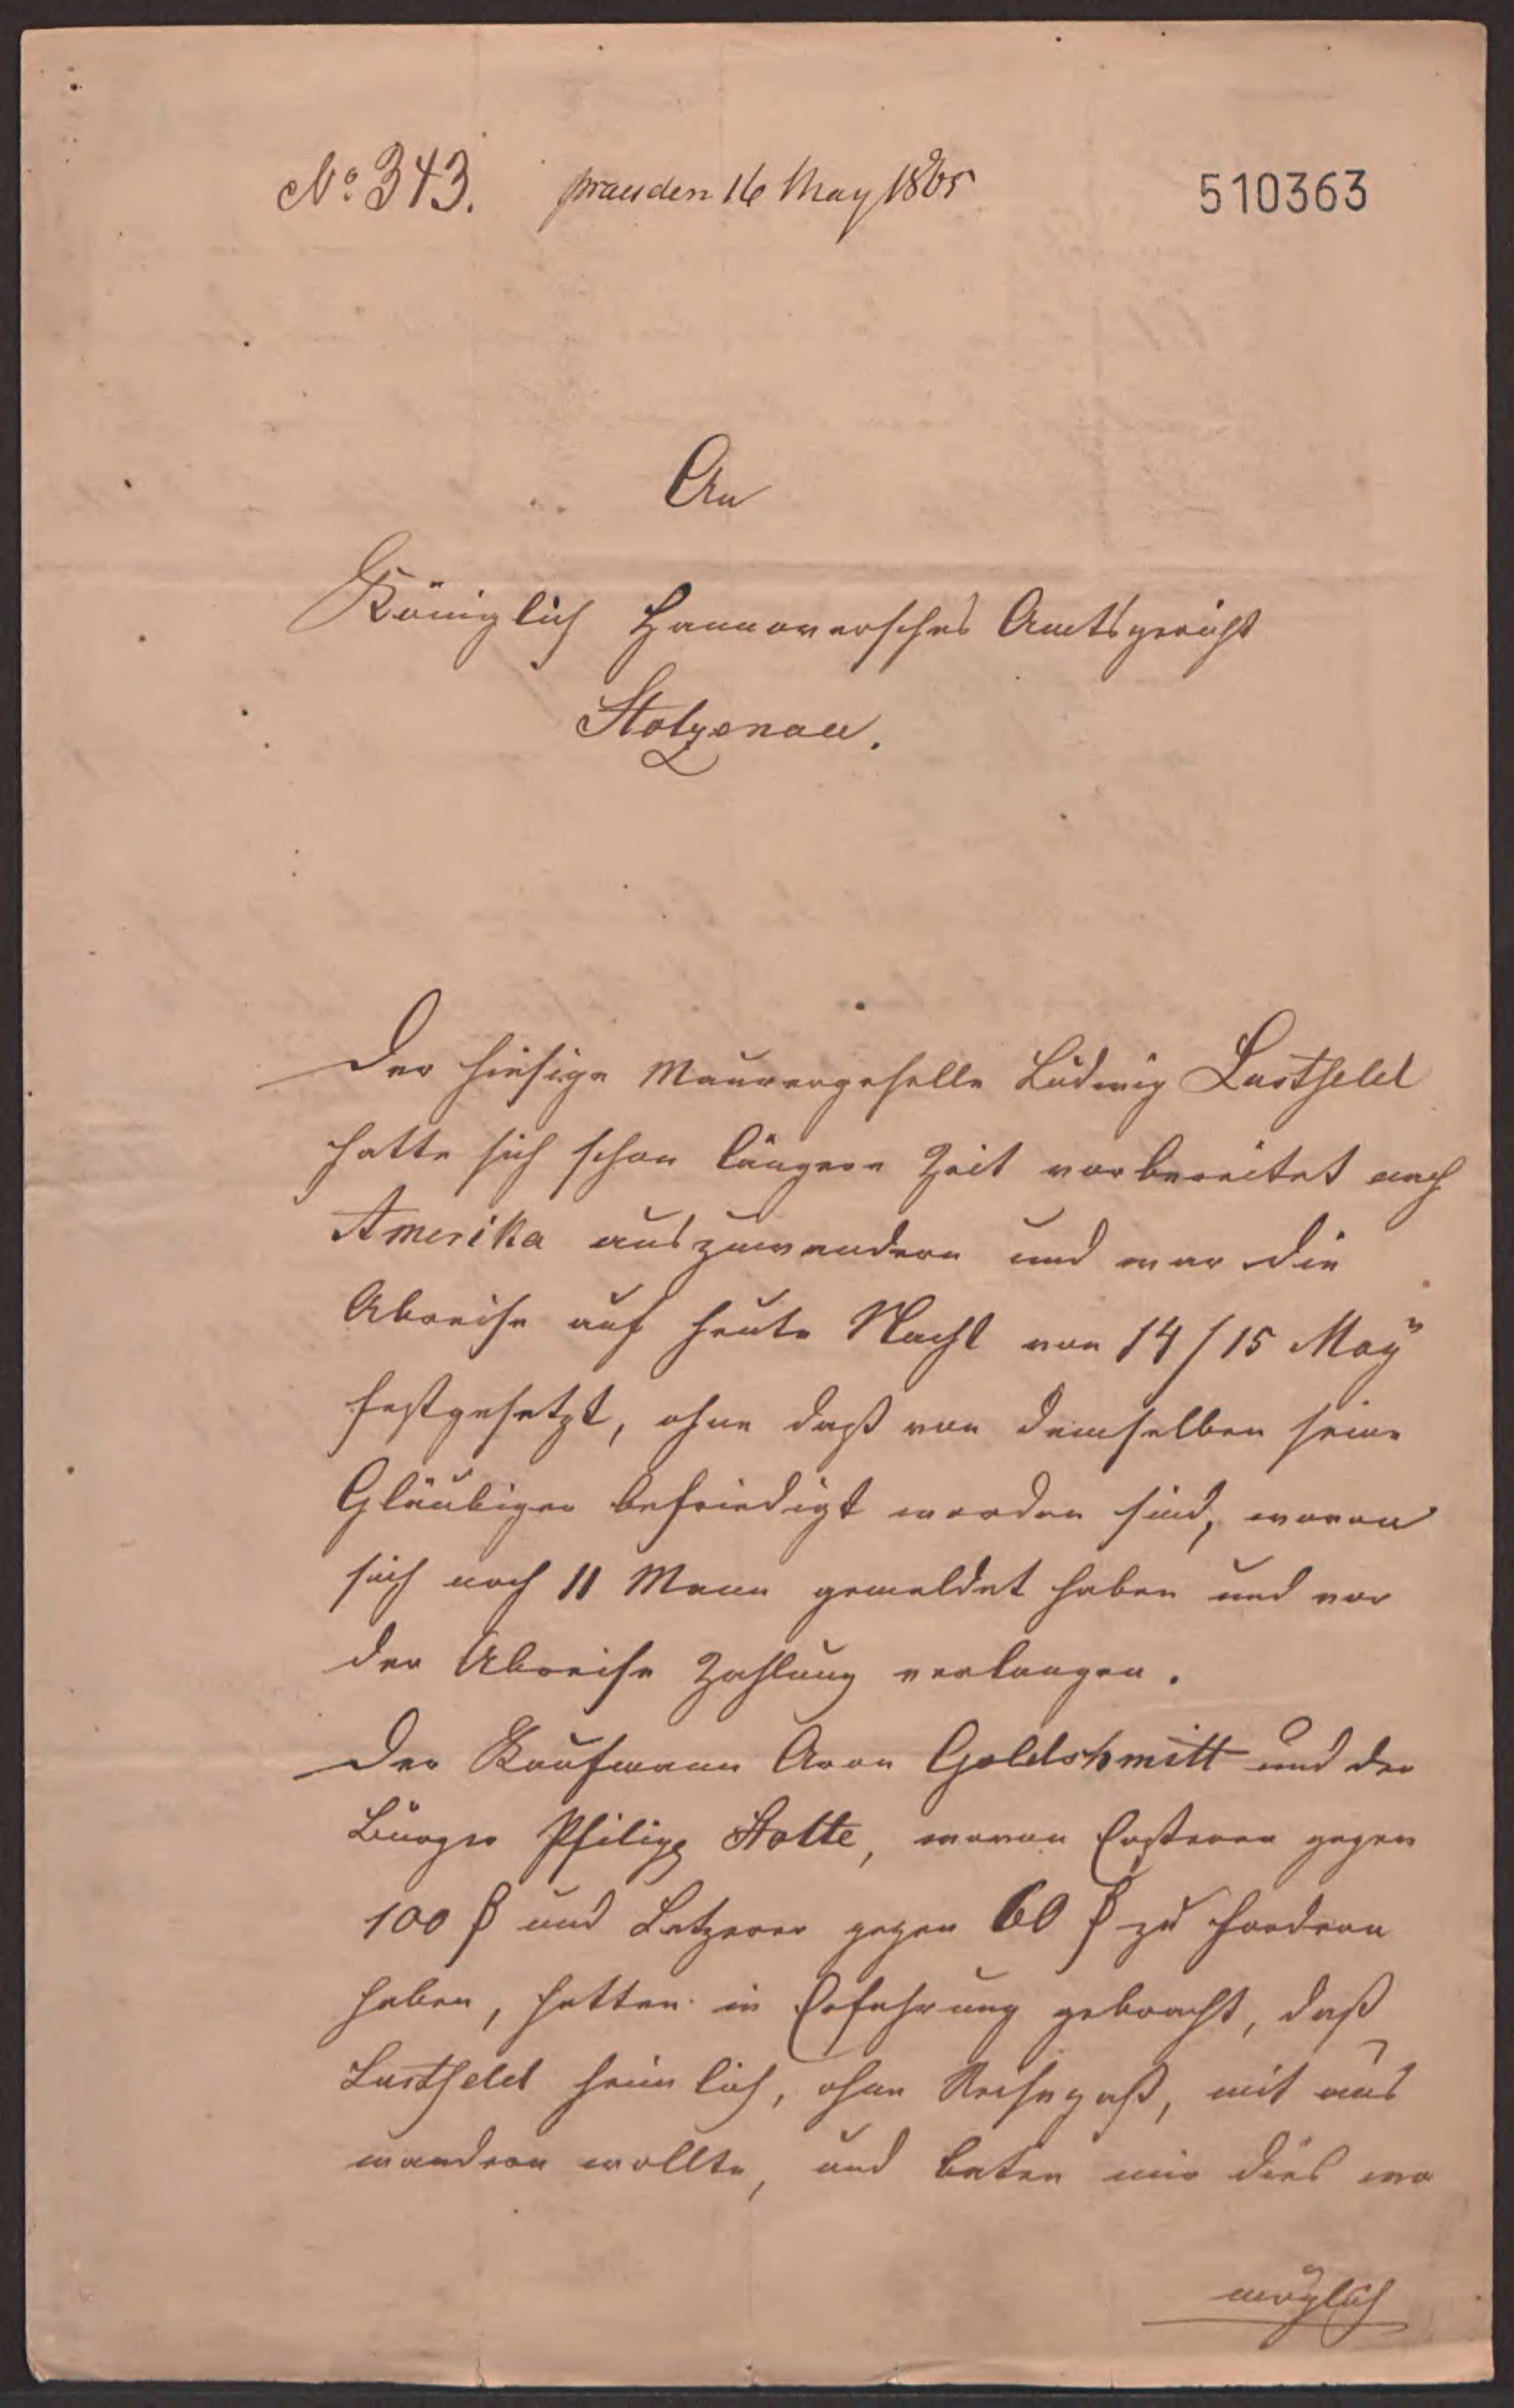 No 343. praes den 16 May 1865
510363
An
Königlich Hannoversches Amtsgericht
Stolzenau.
Der hiesige Maurergeselle Ludwig Lustfeld
hatte sich schon längere Zeit vorbereitet nach
Amerika auszuwandern und war die
Abreise auf heute Nacht von 14/15 May
festgesetzt, ohne daß von demselben seine
Gläubiger befriedigt worden sind, wovon
sich noch 11 Mann gemeldet haben und vor
der Abreise Zahlung verlangen.
Der Kaufmann Aron Goldshmitt und der
Bürger Philipp Stolte, wovon Ersterer gegen
100 ₰ und Letzerer gegen 60 ₰ zu fordern
haben, hatten in Erfahrung gebracht, daß
Lustfeld heimlich, ohne Reisepaß, mit aus
wandern wollte, und baten mir dies wo
möglich